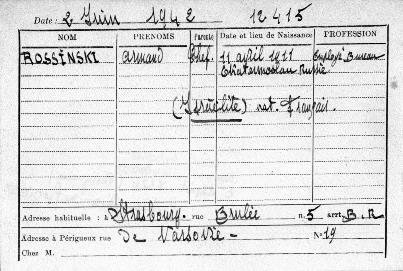 Date : 2 Juin 1942 12415
NOM PRENOMS Parenté Date et lieu de Naissance PROFESSION
ROSSINSKI Armand Chef 11 avril 1911 Employé Bureau
Russie
(Israélite) nat. Français.
Adresse habituelle : à Strasbourg. rue Brulée n. 5 arrt B. R
Adresse à Périgueux rue de Varsovie - N° 19
Chez M.